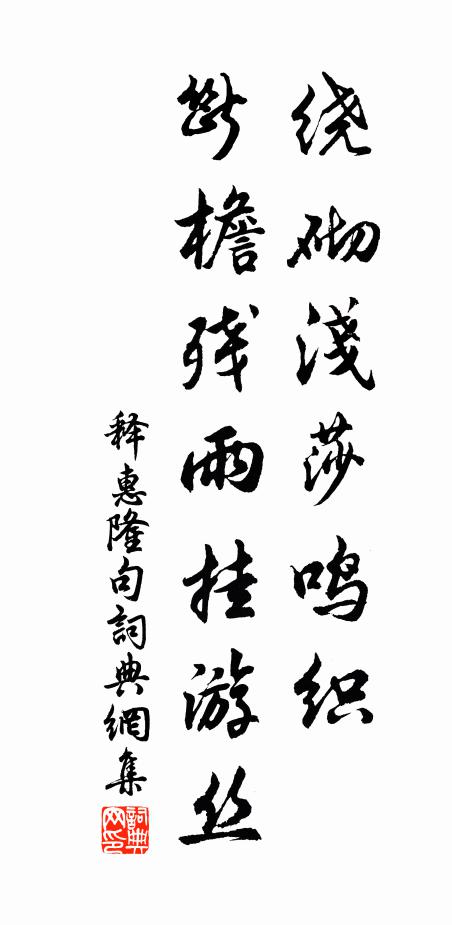 绕砌浅莎鸣织
断檐残雨挂游丝
释惠隆句詞典網集
詞典网印